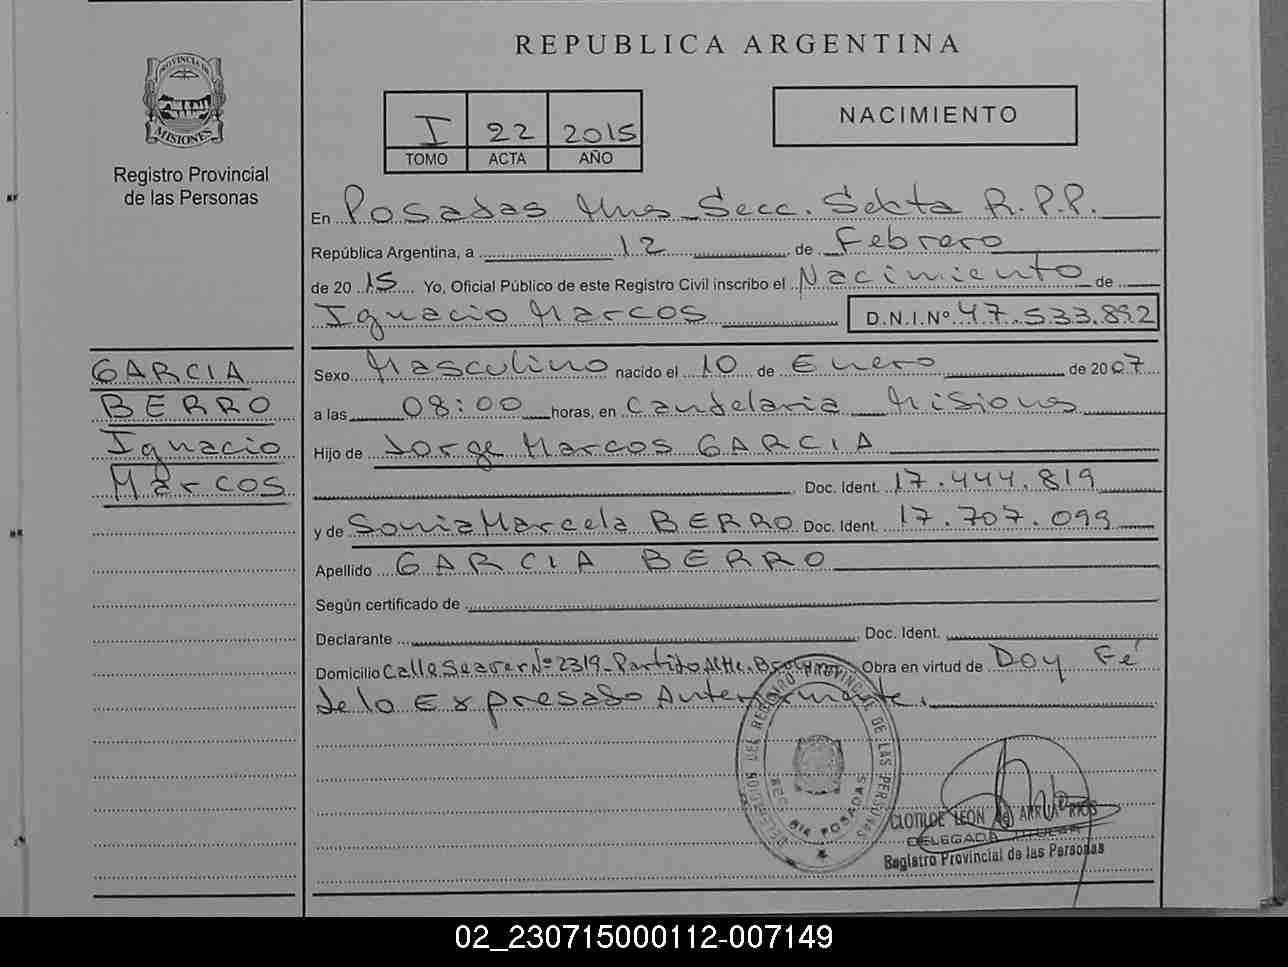 REPUBLICA ARGENTINA
PROVINCIA DE
MISIONES
Registro Provincial
de las Personas
I 22 2015
TOMO ACTA AÑO
NACIMIENTO
En Posadas Mnes Secc. Sexta R.P.P.
República Argentina, a 12 de Febrero
de 20 15 Yo, Oficial Público de este Registro Civil inscribo el Nacimiento de
Ignacio Marcos D.N.I.Nº 47.533.892
GARCIA
BERRO
Ignacio
Marcos
Sexo Masculino nacido el 10 de Enero de 2007
a las 08:00 horas, en Candelaria Misiones
Hijo de Jorge Marcos GARCIA
Doc. Ident. 17.444.819
y de Sonia Marcela BERRO Doc. Ident. 17.707.099
Apellido GARCIA BERRO
Según certificado de
Declarante Doc. Ident.
Domicilio Calle Seaver Nº 2319_Partido Alte. Brown Obra en virtud de Doy Fé
de lo Expresado Anteriormente.
REGISTRO PROVINCIAL DE LAS PERSONAS
SEC. 6ta POSADAS
CLOTILDE LEON de ARRUA RIOS
DELEGADA TITULAR
Registro Provincial de las Personas
02_230715000112-007149